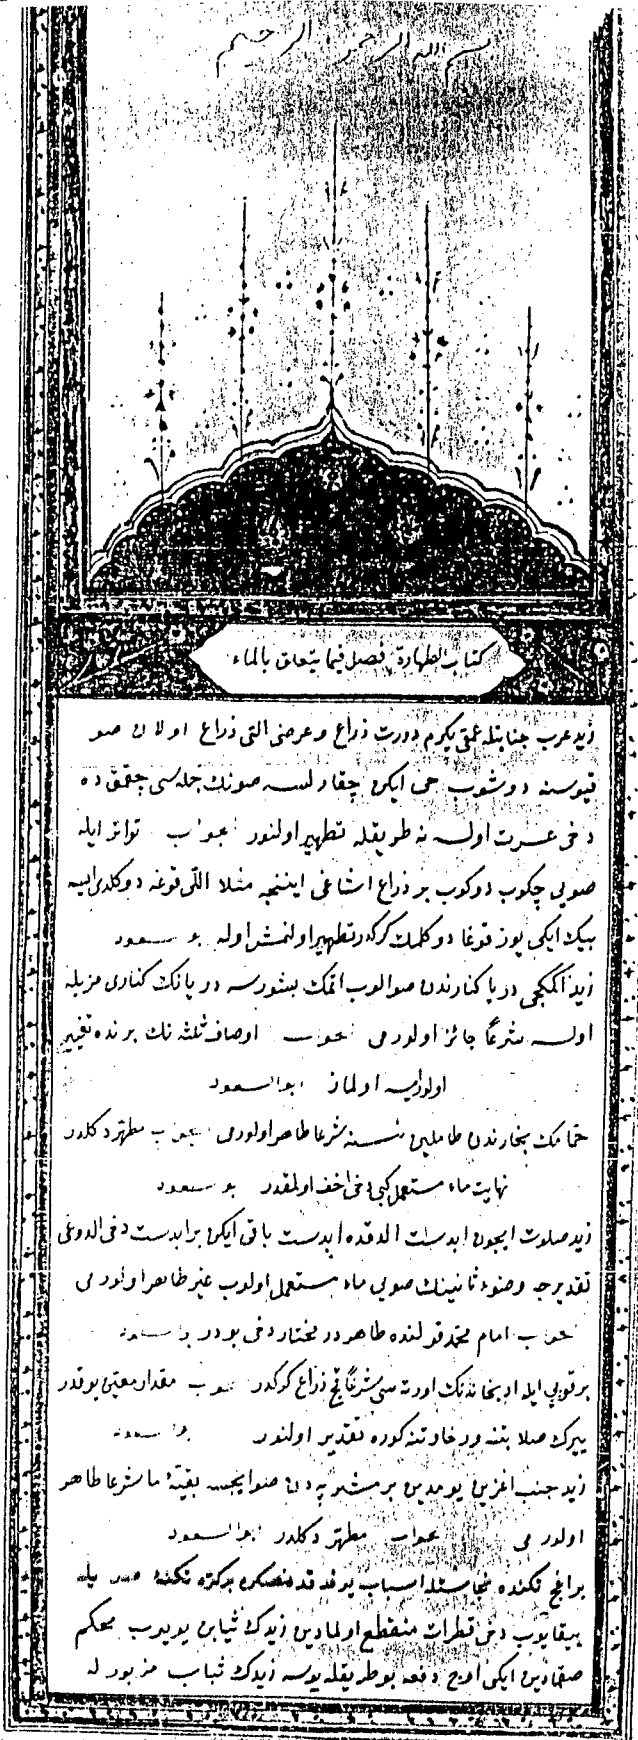 بسم الله الرحمن الرحيم
كتاب الطهارة فصل فيما يتعلق بالماء
زيد عرب جنابتله عمقى يكرمى دورت ذراع وعرضى التى ذراع اولان صو
قيوسنه دوشوب حى ايكن چقارلسه صونك جمله سى چقمق ده
دخى عسرت اولسه نه طريقله تطهير اولنور الجواب تواتر ايله
صويى چكوب دوكوب بر ذراع اشاغى اينجه مثلا اللى قوغه دوكلدى ايسه
بيك ايكى يوز قوغا دوكلمك كركدر تطهير اولنمش اوله ابو السعود
زيد اكمكجى دريا كنارندن صو الوب اتمك بشورسه دريانك كنارى مزبله
اولسه شرعا جائز اولورمى الجواب اوصاف ثلثه نك برنده تغيير
اولورايسه اولماز ابو السعود
حمامك بخارندن طاملين نسنه شرعا طاهر اولورمى الجواب مطهر دكلدر
نهايت ماء مستعمل كبى دخى اخف اولمقدر ابو السعود
زيد صلوت ايچون ابدست الدقده ابدست باقى ايكن بر ابدست دخى الدوغى
تقديرجه وضوء ثانينك صويى ماء مستعمل اولوب غير طاهر اولورمى
الجواب امام محمد قولنده طاهردر مختار دخى بودر ابو السعود
بر قويى ايله ادبخانه نك اورته سى شرعا قچ ذراع كركدر الجواب مقدار معين يوقدر
ييرك صلابتنه ورخاوتنه كوره تقدير اولنور ابو السعود
زيد جنب اغزين يومدين بر مشربه دن صو ايچسه بقيۀ ما شرعا طاهر
اولورمى الجواب مطهر دكلدر ابو السعود
بر اقچ تكنده نجاستلو اسباب يوندقدنصكره بر كره تكنه صو يله
ييقايوب دخى قطرات منقطع اولمادين زيدك ثيابن يويوب محكم
صقمادين ايكى اوچ دفعه بو طريقله يوسه زيدك ثياب مزبور له